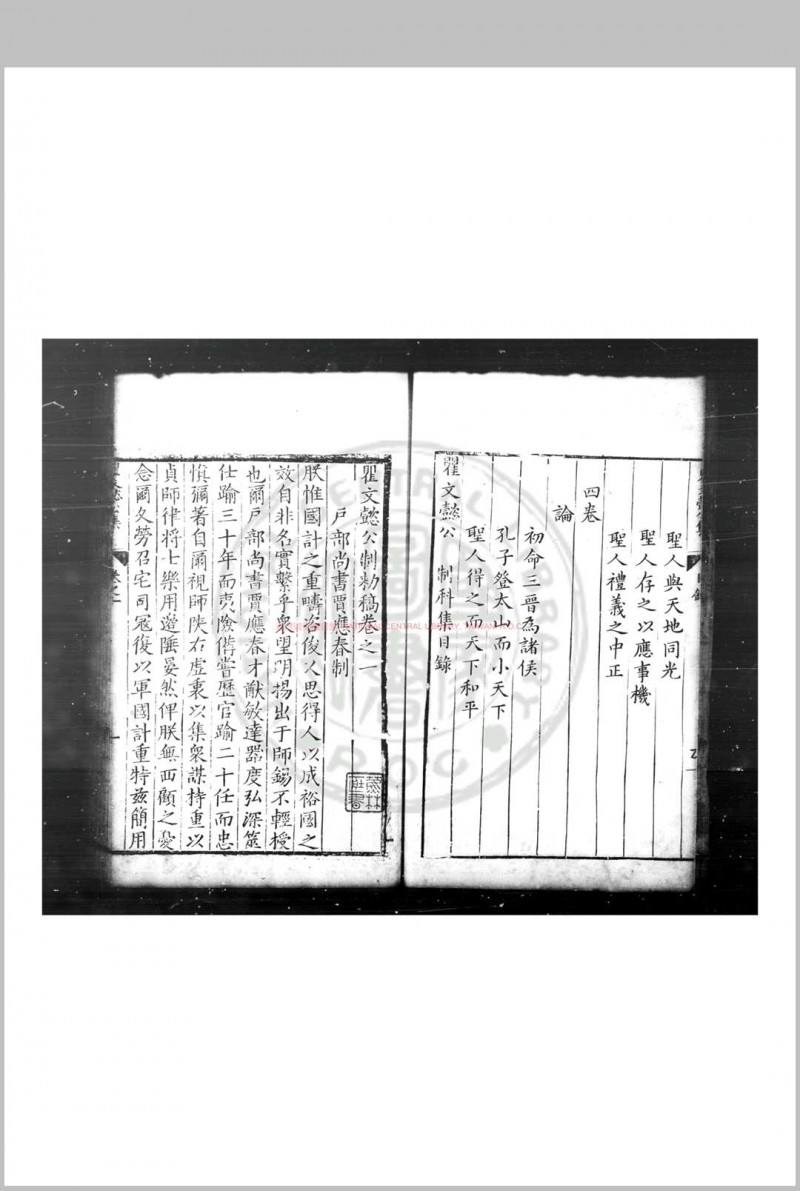 聖人與天地同光
聖人存之以應事機
聖人禮義之中正
四卷
論
初命三晉爲諸侯
孔子登太山而小天下
聖人得之而天下和平
瞿文懿公 制科集目錄
瞿文懿公制勑稿卷之一
戶部尚書賈應春制
朕惟國計之重疇咨俊乂思得人以成裕國之
效自非名實繫乎衆望明揚出于師錫不輕授
也爾戶部尚書賈應春才猷敏達器度弘深筮
仕踰三十年而夷險備嘗歷官踰二十任而忠
慎彌著自爾視師陜右虛衷以集衆謀持重以
貞師律將士樂用邊陲晏然俾朕無西顧之憂
念爾久勞召宅司寇復以軍國計重特茲簡用